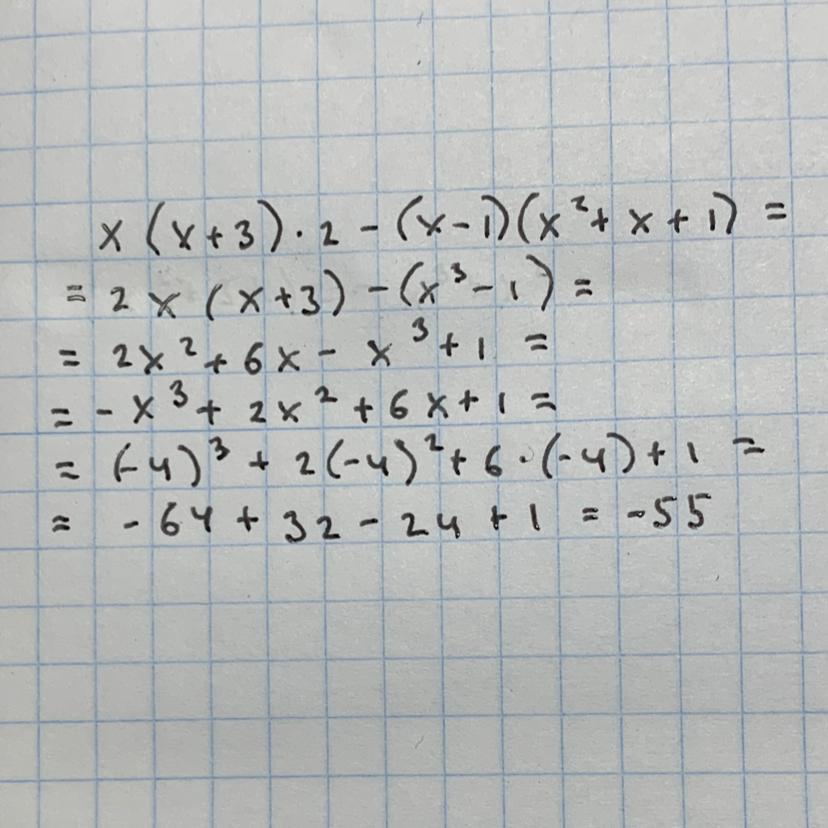 x(x+3)·2-(x-1)(x²+x+1)=
=2x(x+3)-(x³-1)=
=2x²+6x-x³+1=
=-x³+2x²+6x+1=
=(-4)³+2(-4)²+6·(-4)+1=
=-64+32-24+1=-55